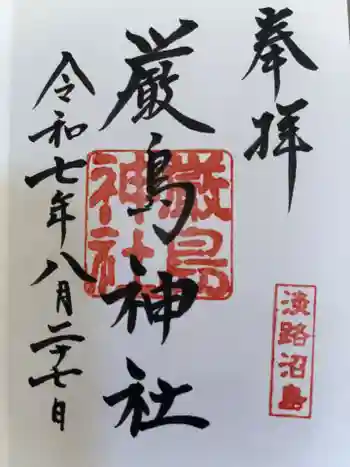 奉拝
淡路沼島
厳島神社
厳島神社
令和七年八月二十七日